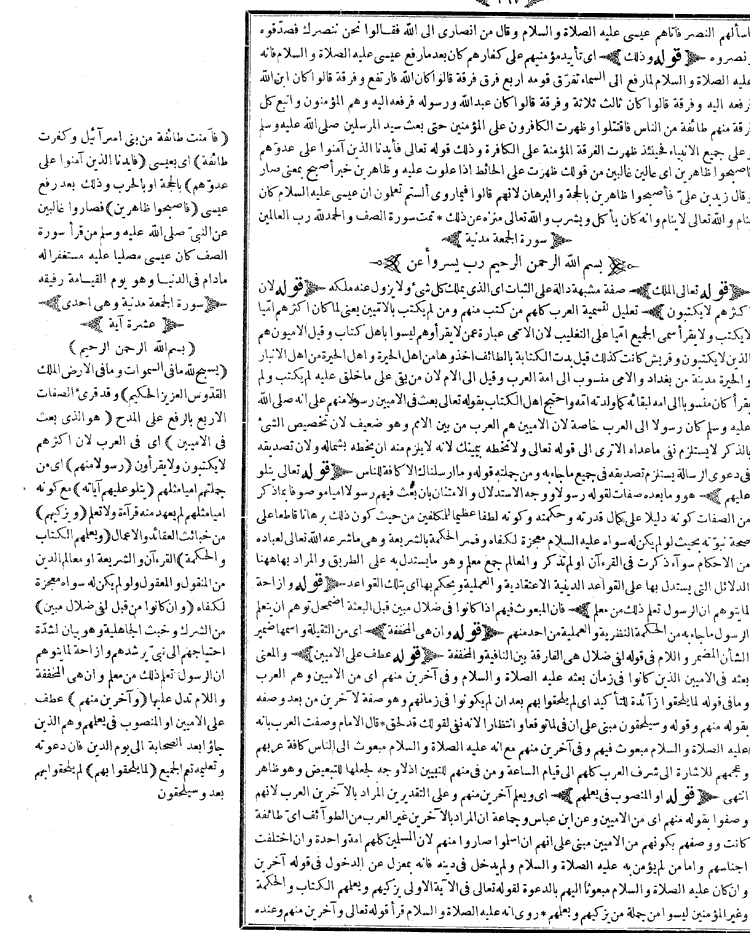 اسألهم النصر فأتاهم عيسى عليه الصلاة والسلام وقال من انصارى الى الله فقالوا نحن ننصرك فصدقوه
ونصروه ﴿ قوله وذلك ﴾ اى تأييد مؤمنيهم على كفارهم كان بعد مارفع عيسى عليه الصلاة والسلام فانه
عليه الصلاة والسلام لما رفع الى السماء تفرق قومه اربع فرق فرقة قالوا كان الله فارتفع وفرقة قالوا كان ابن الله
فرفعه اليه وفرقة قالوا كان ثالث ثلاثة وفرقة قالوا كان عبد الله ورسوله فرفعه اليه وهم المؤمنون واتبع كل
فرقة منهم طائفة من الناس فاقتتلوا وظهرت الكافرون على المؤمنين حتى بعث سيد المرسلين صلى الله عليه وسلم
وعلى جميع الانبياء فحينئذ ظهرت الفرقة المؤمنة على الكافرة وذلك قوله تعالى فأيدنا الذين آمنوا على عدوهم
فاصبحوا ظاهرين اى عالين غالبين من قولك ظهرت على الحائط اذا علوت عليه وظاهرين خبر أصبح بمعنى صار
وقال زيد بن على فأصبحوا ظاهرين بالحجة والبرهان لانهم قالوا فيما روى ألستم تعلمون ان عيسى عليه السلام كان
ينام والله تعالى لا ينام وانه كان يأكل ويشرب والله تعالى منزه عن ذلك * تمت سورة الصف والحمد لله رب العالمين
﴿ سورة الجمعة مدنية ﴾
بسم الله الرحمن الرحيم رب يسر وأعن
﴿ قوله تعالى الملك ﴾ صفة مشبهة دالة على الثبات اى الذى يملك كل شئ ولا يزول عنه ملكه ﴿ قوله لان
اكثرهم لا يكتبون ﴾ تعليل لتسمية العرب كلهم من كتب منهم ومن لم يكتب بالاميين يعنى لما كان اكثرهم اميا
لا يكتب ولا يقرأ سمى الجميع اميا على التغليب لان الامى عبارة عمن لا يقرأ وهم ليسوا باهل كتاب وقيل الاميون هم
الذين لا يكتبون وقريش كانت كذلك قيل بدت الكتابة بالطائف اخذوها من اهل الحيرة واهل الحيرة من اهل الانبار
والحيرة مدينة من بغداد والامى منسوب الى امة العرب وقيل الى الام لان من بقى على ماخلق عليه لم يكتب ولم
يقرأ كان منسوبا الى امه لبقائه كما ولدته امه واحتج اهل الكتاب بقوله تعالى بعث فى الاميين رسولا منهم على انه صلى الله
عليه وسلم كان رسولا الى العرب خاصة لان الاميين هم العرب من بين الامم وهو ضعيف لان تخصيص الشئ
بالذكر لا يستلزم نفى ماعداه الاترى الى قوله تعالى ولا تخطه بيمينك لانه لا يلزم منه ان يخطه بشماله ولان تصديقه
فى دعوى الرسالة يستلزم تصديقه فى جميع ماجاء به ومن جملته قوله وما ارسلناك الا كافة للناس ﴿ قوله تعالى يتلو
عليهم ﴾ هو وما بعده صفات لقوله رسولا ووجه الاستدلال والامتنان بان بعث فيهم رسولا اميا موصوفا بما ذكر
من الصفات كونه دليلا على كمال قدرته وحكمته وكونه لطفا عظيما للمكلفين من حيث كون ذلك برهانا قاطعا على
صحة نبوته بحيث لو لم يكن له سواه عليه السلام معجزة لكفاه وفسر الحكمة بالشريعة وهى ماشرعه الله تعالى لعباده
من الاحكام سوآء ذكرت فى القرءآن او لم تذكر والمعالم جمع معلم وهو مايستدل به على الطريق والمراد بها ههنا
الدلائل التى يستدل بها على القواعد الدينية الاعتقادية والعملية ويحكم بها اى بتلك القواعد ﴿ قوله وازاحة
لما يتوهم ان الرسول تعلم ذلك من معلم ﴾ فان المبعوث فيهم اذا كانوا فى ضلال مبين قبل البعثة اضمحل توهم ان يتعلم
الرسول ماجاء به من الحكمة النظرية والعملية من احد منهم ﴿ قوله وان هى المخففة ﴾ اى من الثقيلة واسمها ضمير
الشأن المضمر واللام فى قوله لفى ضلال هى الفارقة بين النافية والمخففة ﴿ قوله عطف على الاميين ﴾ والمعنى
بعثه فى الاميين الذين كانوا فى زمان بعثه عليه الصلاة والسلام وفى آخرين منهم اى من الاميين وهم العرب
وما فى قوله لما يلحقوا زآئدة للتأكيد اى لم يلحقوا بهم بعد ان لم يكونوا فى زمانهم وهو صفة لآخرين من بعد وصفه
بقوله منهم وقوله وسيلحقون مبنى على ان فى لما توقعا وانتظارا لانه نفى لقولك قد لحق * قال الامام وصفت العرب بانه
عليه الصلاة والسلام مبعوث فيهم وفى آخرين منهم مع انه عليه الصلاة والسلام مبعوث الى الناس كافة عربهم
وعجمهم للاشارة الى شرف العرب كلهم الى قيام الساعة ومن فى منهم للتبيين اذ لا وجه لجعلها للتبعيض وهو ظاهر
انتهى ﴿ قوله او المنصوب فى يعلمهم ﴾ اى ويعلم آخرين منهم وعلى التقديرين المراد بالآخرين العرب لانهم
وصفوا بقوله منهم اى من الاميين وعن ابن عباس وجماعة ان المراد بالآخرين غير العرب من الطوآئف اى طائفة
كانت ووصفهم بكونهم من الاميين مبنى على انهم ان اسلموا صاروا منهم لان المسلمين كلهم امة واحدة وان اختلفت
اجناسهم واما من لم يؤمن به عليه الصلاة والسلام ولم يدخل فى دينه فانه بمعزل عن الدخول فى قوله آخرين
وان كان عليه الصلاة والسلام مبعوثا اليهم بالدعوة لقوله تعالى فى الآية الاولى يزكيهم ويعلمهم الكتاب والحكمة
وغير المؤمنين ليسوا من جملة من يزكيهم ويعلمهم * روى انه عليه الصلاة والسلام قرأ قوله تعالى وآخرين منهم وعنده
( فآمنت طائفة من بنى اسرآئيل وكفرت
طائفة ) اى بعيسى ( فايدنا الذين آمنوا على
عدوهم ) بالحجة او بالحرب وذلك بعد رفع
عيسى ( فاصبحوا ظاهرين ) فصاروا غالبين
عن النبى صلى الله عليه وسلم من قرأ سورة
الصف كان عيسى مصليا عليه مستغفرا له
مادام فى الدنيا وهو يوم القيامة رفيقه
﴿ سورة الجمعة مدنية وهى احدى ﴾
﴿ عشرة آية ﴾
( بسم الله الرحمن الرحيم )
( يسبح لله مافى السموات ومافى الارض الملك
القدوس العزيز الحكيم ) وقد قرئ الصفات
الاربع بالرفع على المدح ( هو الذى بعث
فى الاميين ) اى فى العرب لان اكثرهم
لا يكتبون ولا يقرأون ( رسولا منهم ) اى من
جملتهم اميا مثلهم ( يتلو عليهم آياته ) مع كونه
اميا مثلهم لم يعهد منه قرآءة ولا تعلم ( ويزكيهم )
من خبائث العقائد والاعمال ( ويعلمهم الكتاب
والحكمة ) القرءآن والشريعة او معالم الدين
من المنقول والمعقول ولو لم يكن له سواه معجزة
لكفاه ( وان كانوا من قبل لفى ضلال مبين )
من الشرك وخبث الجاهلية وهو بيان لشدة
احتياجهم الى نبى يرشدهم وازاحة لما يتوهم
ان الرسول تعلم ذلك من معلم وان هى المخففة
واللام تدل عليها ( وآخرين منهم ) عطف
على الاميين او المنصوب فى يعلمهم وهم الذين
جاؤا بعد الصحابة الى يوم الدين فان دعوته
وتعليمه تعم الجميع ( لما يلحقوا بهم ) لم يلحقوا بهم
بعد وسيلحقون